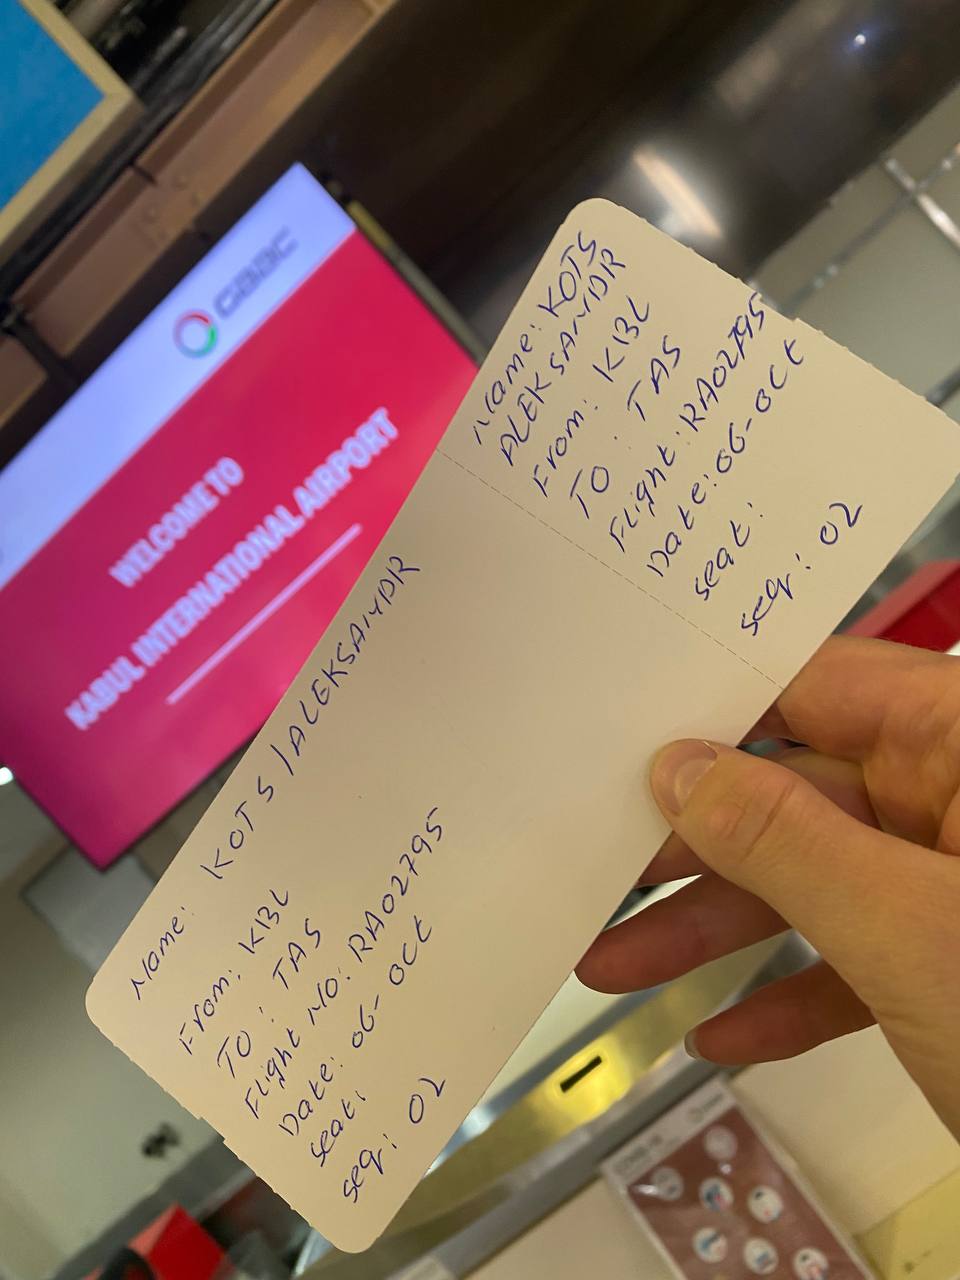 GAAC
WELCOME TO
KABUL INTERNATIONAL AIRPORT
Name: KOTS
ALEKSANDR
From: KBL
TO: TAS
Flight: RA02795
Date: 06-OCt
seat:
seq: 02
Name: KOTS/ALEKSANDR
From: KBL
TO: TAS
Flight NO: RA02795
Date: 06-OCt
seat:
seq: 02